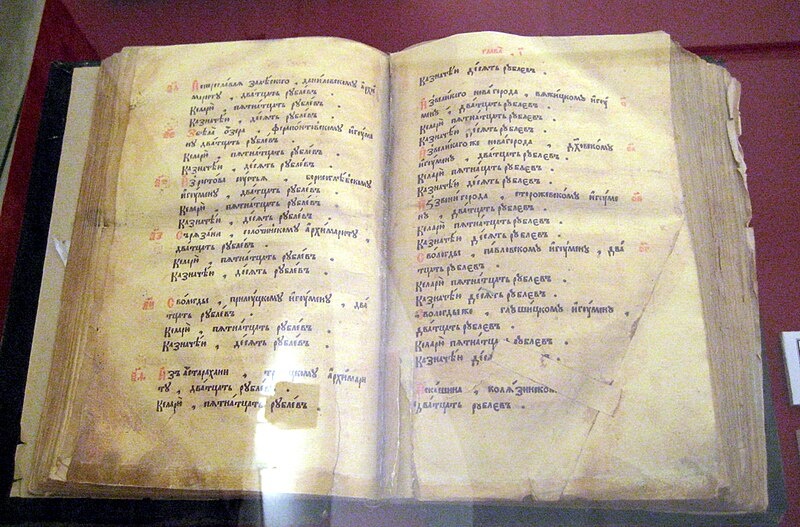 Переславля залеского, даниловскому архи
мариту, дватцать рублев.
Келарю, пятнатцать рублев.
Казначею, десять рублев.
Збела озера, ферапонтовскому игуме
ну дватцать рублев.
Келарю, пятнатцать рублев.
Казначею, десять рублев.
Изростова пустыя, борисоглебскому
игумену, дватцать рублев.
Келарю, пятнатцать рублев.
Казначею, десять рублев.
Сърязани, солочинскому архимариту,
дватцать рублев.
Келарю, пятнатцать рублев.
Казначею, десять рублев.
Свологды, прилуцкому игумену, два
тцать рублев.
Келарю, пятнатцать рублев.
Казначею, десять рублев.
Изъ астарахани, троицкому архимари
ту, дватцать рублев.
Келарю, пятнатцать рублевъ.
глава
Казначею десять рублевъ.
Извеликого новагорода, вяжицкому игу
мену, дватцать рублевъ.
Келарю пятнатцать рублевъ.
Казначею десять рублевъ.
Извеликогоже новагорода, духовскому
игумену, дватцать рублевъ.
Келарю пятнатцать рублевъ.
Казначею десять рублевъ.
Иззвенигорода, сторожевскому игуме
ну, дватцать рублевъ.
Келарю пятнатцать рублевъ.
Казначею десять рублевъ.
Свологды, павловскому игумену, два
тцать рублевъ.
Келарю пятнатцать рублевъ.
Казначею десять рублевъ.
Свологдыже, глушицкому игумену,
дватцать рублевъ.
Келарю пятнатца рублевъ.
Казначею деся
Искашина, колязинско
дватцать рублевъ.